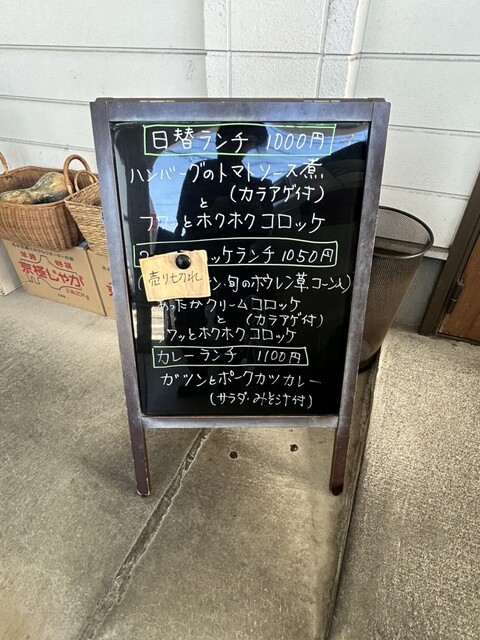 日替ランチ 1000円
ハンバーグのトマトソース煮
(カラアゲ付)
と
フワッとホクホクコロッケ
ッケランチ 1050円
売り切れ
ン・旬のホウレン草コーン入)
あったかクリームコロッケ
と (カラアゲ付)
フワッとホクホクコロッケ
カレーランチ 1100円
ガツンとポークカツカレー
(サラダ・みそ汁付)
特選
京極じゃが